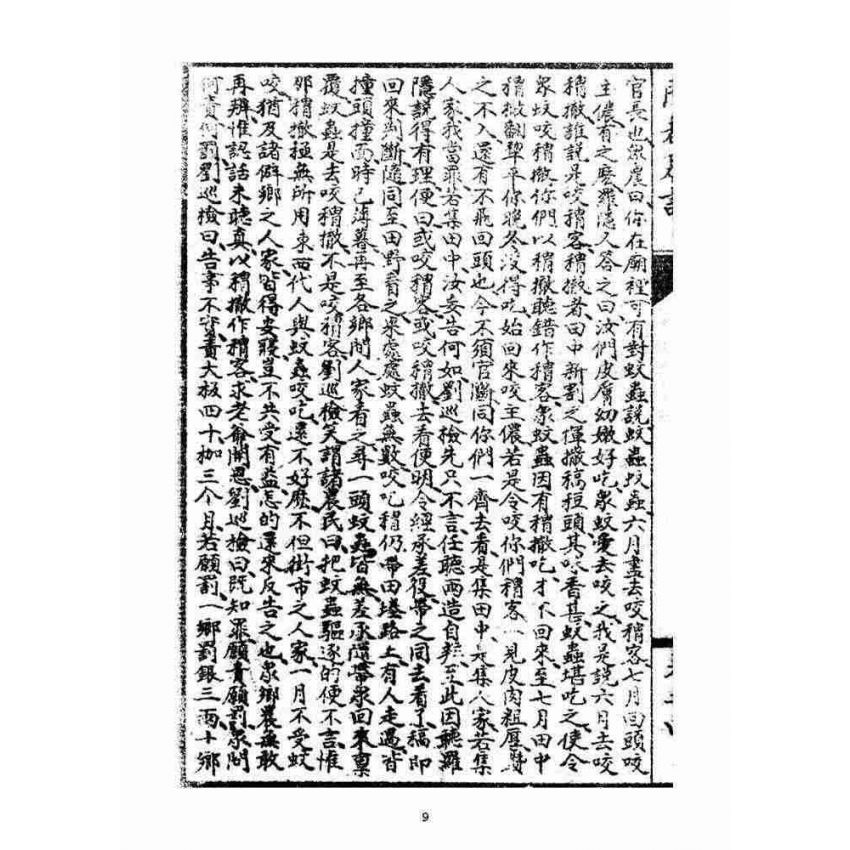 官長也眾農曰你在廟裡可有對蚊蟲說蚊蟲蚊蟲六月盡去咬稍客七月回頭咬
主儂有之麼羅隱又答之曰汝們皮膚幼嫩好吃眾蚊愛去咬之我是說六月去咬
稍撒誰說是咬稍客稍撒者田中新割之稈撒稿短頭其味香甚蚊蟲堪吃之使令
眾蚊咬稍撒你們以稍撒聽錯作稍客眾蚊蟲因有稍撒吃才不回來至七月田中
稍撒翻犂平你晚冬沒得吃始回來咬主儂若是令咬你們稍客一見皮肉粗厚
之不入還有不飛回頭也今不須官斷同你們一齊去看是集田中是集人家若集
人家我當罪若集田中汝委告何如劉巡檢先只不言任聽兩造自辨至此因聽羅
隱說得有理便曰或咬稍客或咬稍撒去看便明令經承差役帶之同去看了稿即
回來判斷隨同至田野看之果處處蚊蟲無數咬吃稍仍帶田塍路上有人走過皆
撞頭撞面時已薄暮再至各鄉間人家看之尋一頭蚊蟲皆無差承隨帶眾回來稟
覆蚊蟲是去咬稍撒不是咬稍客劉巡檢笑謂諸農民曰把蚊蟲驅逐的便不言惟
那稍撒極無所用東西代人與蚊蟲咬吃還不好麼不但街市之人家一月不受蚊
咬猶及諸僻鄉之人家皆得安寢豈不共受有益怎的還來反告之也眾鄉農無敢
再辨惟認話未聽真以稍撒作稍客求老爺開恩劉巡檢曰既知罪願責願罰眾問
何責何罰劉巡檢曰告事不實責大板四十枷三个月若願罰一鄉罰銀三兩十鄉
9